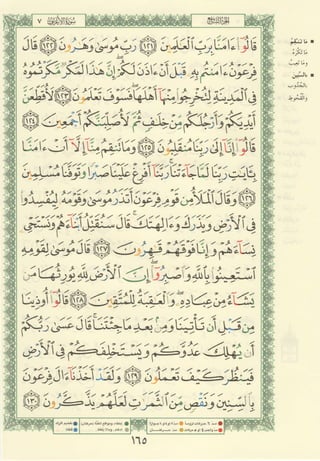 الجُزْءُ التَّاسِعُ سُورَةُ الأَعْرَافِ ٧
قَالُوٓا۟ ءَامَنَّا بِرَبِّ ٱلْعَٰلَمِينَ ١٢١ رَبِّ مُوسَىٰ وَهَٰرُونَ ١٢٢ قَالَ
فِرْعَوْنُ ءَامَنتُم بِهِۦ قَبْلَ أَنْ ءَاذَنَ لَكُمْ إِنَّ هَٰذَا لَمَكْرٌ مَّكَرْتُمُوهُ
فِى ٱلْمَدِينَةِ لِتُخْرِجُوا۟ مِنْهَآ أَهْلَهَا فَسَوْفَ تَعْلَمُونَ ١٢٣ لَأُقَطِّعَنَّ
أَيْدِيَكُمْ وَأَرْجُلَكُم مِّنْ خِلَٰفٍ ثُمَّ لَأُصَلِّبَنَّكُمْ أَجْمَعِينَ ١٢٤
قَالُوٓا۟ إِنَّآ إِلَىٰ رَبِّنَا مُنقَلِبُونَ ١٢٥ وَمَا تَنقِمُ مِنَّآ إِلَّآ أَنْ ءَامَنَّا
بِـَٔايَٰتِ رَبِّنَا لَمَّا جَآءَتْنَا رَبَّنَآ أَفْرِغْ عَلَيْنَا صَبْرًا وَتَوَفَّنَا مُسْلِمِينَ
١٢٦ وَقَالَ ٱلْمَلَأُ مِن قَوْمِ فِرْعَوْنَ أَتَذَرُ مُوسَىٰ وَقَوْمَهُۥ لِيُفْسِدُوا۟
فِى ٱلْأَرْضِ وَيَذَرَكَ وَءَالِهَتَكَ قَالَ سَنُقَتِّلُ أَبْنَآءَهُمْ وَنَسْتَحْىِۦ
نِسَآءَهُمْ وَإِنَّا فَوْقَهُمْ قَٰهِرُونَ ١٢٧ قَالَ مُوسَىٰ لِقَوْمِهِ
ٱسْتَعِينُوا۟ بِٱللَّهِ وَٱصْبِرُوٓا۟ إِنَّ ٱلْأَرْضَ لِلَّهِ يُورِثُهَا مَن
يَشَآءُ مِنْ عِبَادِهِۦ وَٱلْعَٰقِبَةُ لِلْمُتَّقِينَ ١٢٨ قَالُوٓا۟ أُوذِينَا
مِن قَبْلِ أَن تَأْتِيَنَا وَمِنۢ بَعْدِ مَا جِئْتَنَا قَالَ عَسَىٰ رَبُّكُمْ
أَن يُهْلِكَ عَدُوَّكُمْ وَيَسْتَخْلِفَكُمْ فِى ٱلْأَرْضِ
فَيَنظُرَ كَيْفَ تَعْمَلُونَ ١٢٩ وَلَقَدْ أَخَذْنَآ ءَالَ فِرْعَوْنَ
بِٱلسِّنِينَ وَنَقْصٍ مِّنَ ٱلثَّمَرَٰتِ لَعَلَّهُمْ يَذَّكَّرُونَ ١٣٠
١٦٥